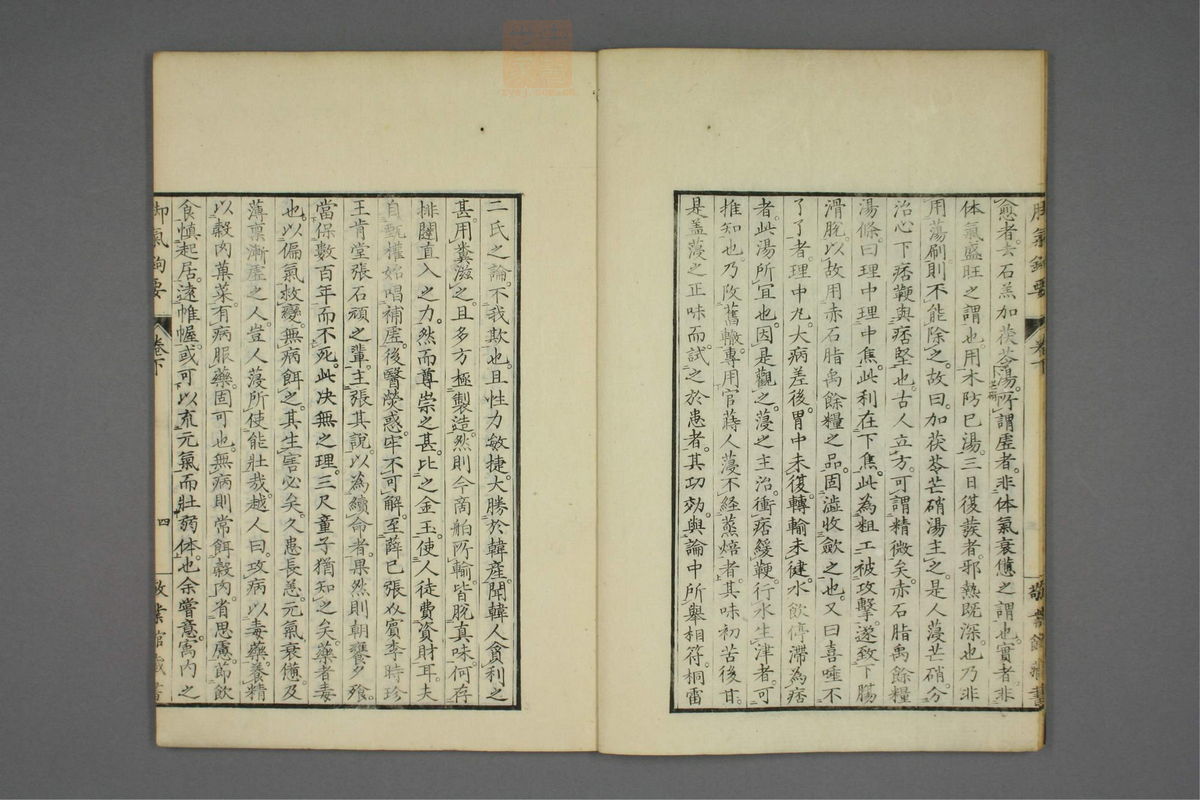 脚氣鉤要 卷下 敬業館藏書
愈者去石羔加茯苓芒硝湯所謂虛者非体氣衰憊之謂也實者非
体氣盛旺之謂也用木防已湯三日復發者邪熱既深也乃非
用蕩刷則不能除之故曰加茯苓芒硝湯主之是人薓芒硝分
治心下痞鞕與痞堅也古人立方可謂精微矣赤石脂禹餘糧
湯條曰理中理中焦此利在下焦此為粗工被攻擊遂致下膓
滑脫以故用赤石脂禹餘糧之品固澁收歛之也又曰喜唾不
了了者理中丸大病差後胃中未復轉輸未健水飲停滯為痞
者此湯所宜也因是觀之薓之主治衝痞緩鞕行水生津者可
推知也乃改舊轍專用官蒔人薓不経蒸焙者其味初苦後甘
是盖薓之正味而試之於患者其功効與論中所舉相符桐雷
二氏之論不我欺也且性力敏捷大勝於韓産聞韓人貪利之
甚用糞滋之且多方極製造然則今商舶所輸皆脫真味何存
排闥直入之力然而尊崇之甚比之金玉使人徒費資財耳夫
自甄權始唱補虛後醫熒惑牢不可解至薛已張介賓李時珍
王肯堂張石頑之輩主張其說以為續命者果然則朝饔夕飱
當保數百年而不死此決無之理三尺童子猶知之矣藥者毒
也以偏氣救變無病餌之其生害必矣久患長恙元氣衰憊及
薄稟漸虛之人豈人薓所使能壯哉越人曰攻病以毒藥養精
以穀肉菓菜有病服藥固可也無病則常餌穀肉省思慮節飲
食慎起居遠帷幄或可以充元氣而壯弱体也余嘗意寓内之
脚氣鉤要 卷下 四 敬業館藏書